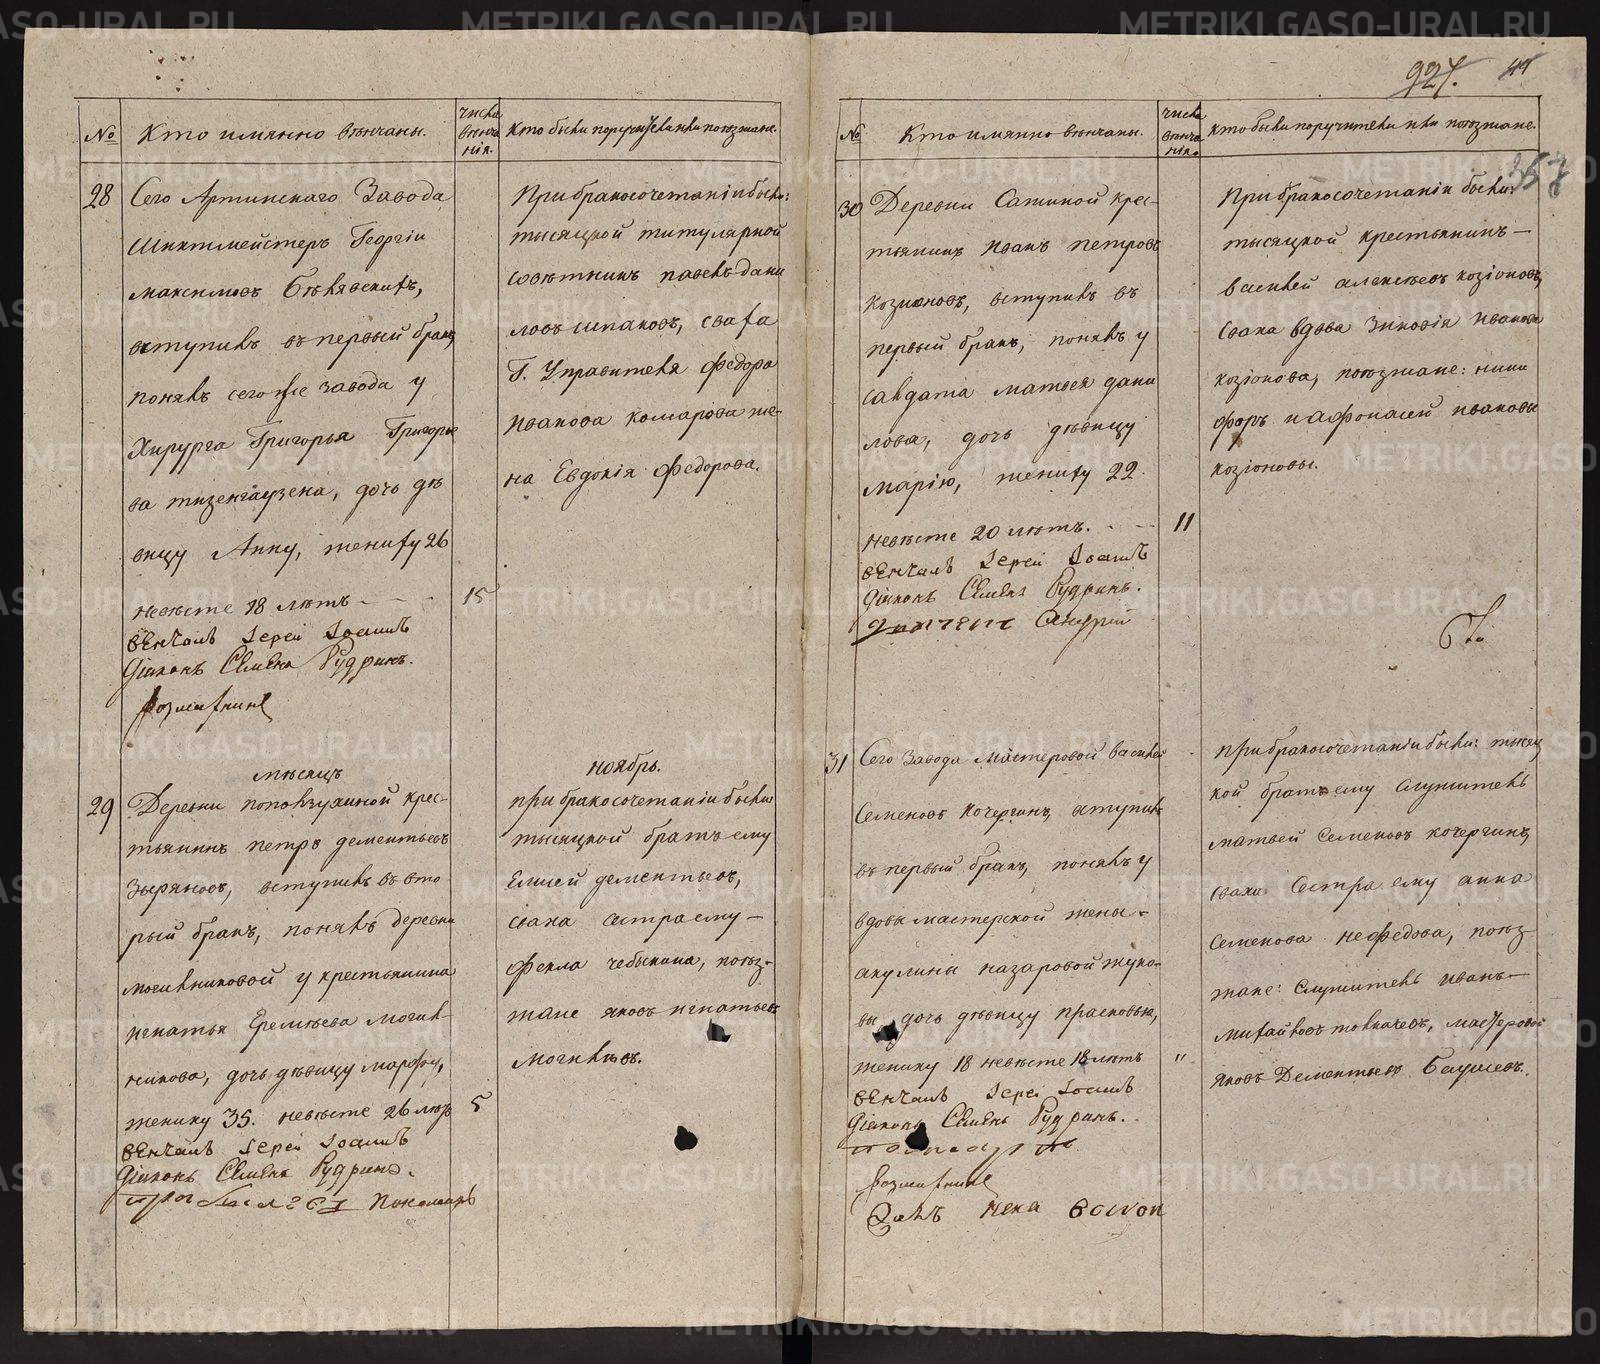 №
Кто имянно вѣнчаны.
числа вѣнча нія.
Кто были поручители или поѣзжане.
28
Сего Артинскаго Завода
Шихтмейстеръ Георгіи
Максимовъ Бѣлявскихъ,
вступилъ въ первый бракъ,
понявъ сегоже завода у
Хирурга Григорья Григорье
ва тизенгаузена, дочь дѣ
вицу Анну, жениху 26
невѣсте 18 лѣтъ
15
вѣнчалъ Іереи Іоаннъ
Діаконъ Семенъ Рудринъ.
При бракосочетаніи были:
тысяцкой титулярной
совѣтникъ павелъ дани
ловъ шпаковъ, сваха
Г. Управителя Федора
Иванова комарова же-
на Евдокія Федорова.
мѣсяцъ
ноябрь.
29
Деревни поползухиной крес-
тьянинъ петръ дементьевъ
Зыряновъ, вступилъ въ вто
рый бракъ, понявъ деревни
могильниковой у крестьянина
игнатья Еремѣева могиль-
никова, дочь дѣвицу марфу,
женику 35. невѣсте 26 лѣтъ
5
вѣнчалъ Іереи Іоаннъ
Діаконъ Семенъ Рудринъ.
пономарь
при бракосочетаніи были
тысяцкой братъ ему
Елисей дементьевъ,
сваха сестра ему
Фекла чебыкина, поѣз-
жане яковъ игнатьевъ
могилѣвъ.
927.
41
357
№
Кто имянно вѣнчаны.
числа вѣнча нія.
кто были поручители или поѣзжане.
30
Деревни Сажиной крес-
тьянинъ Иванъ петровъ
козионовъ, вступилъ въ
первый бракъ, понявъ у
салдата матвея дани
лова, дочь дѣвицу
марію, жениху 22
невѣсте 20 лѣтъ.
11
вѣнчалъ Іереи Іоаннъ
Діаконъ Семенъ Рудринъ.
Андрей
При бракосочетаніи были:
тысяцкой крестьянинъ
василей алексѣевъ козіоновъ,
сваха вдова Зиновія Иванова
козіонова, поѣзжане: ники
форъ и афонасей ивановы
козіоновы.
31
Сего Завода мастеровой василей
Семеновъ Кочергинъ, вступилъ
въ первый бракъ, понявъ у
вдовы мастерской жены
акулины назаровой жуко-
вы дочь дѣвицу прасковью,
женику 18 невѣсте 18 лѣтъ
"
вѣнчалъ Іереи Іоаннъ
Діаконъ Семенъ Рудринъ.
при бракосочетаніи были: тысяц
кой братъ ему служитель
матвей Семеновъ кочергинъ,
сваха сестра ему анна
Семенова нефедова, поѣз
жане: Служитель иванъ
михайловъ толмачевъ, мастеровой
яковъ Дементьевъ Баушевъ.
METRIKI.GASO-URAL.RU